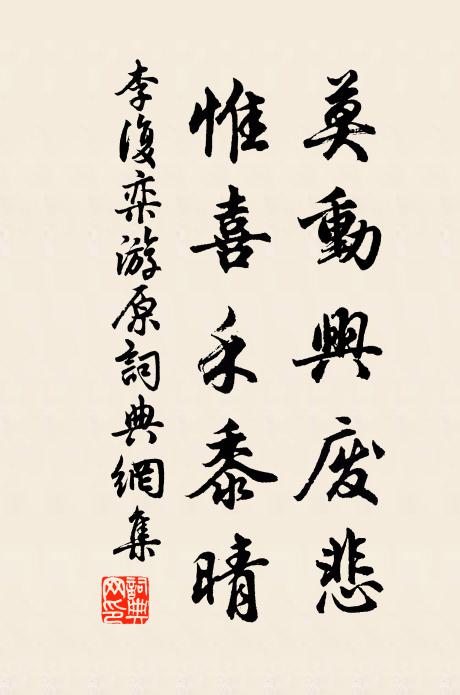 莫動興廢悲
惟喜禾黍晴
李復奕游原詞典網集
詞典網印